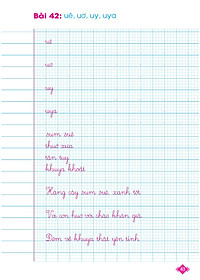 Bài 42: uê, uơ, uy, uya
uê
uơ
uy
uya
sum suê
thuở xưa
tận tuỵ
khuya khoắt
Hàng cây sum suê, xanh tốt.
Voi con huơ vòi chào khán giả.
Đêm về khuya thật yên tĩnh.